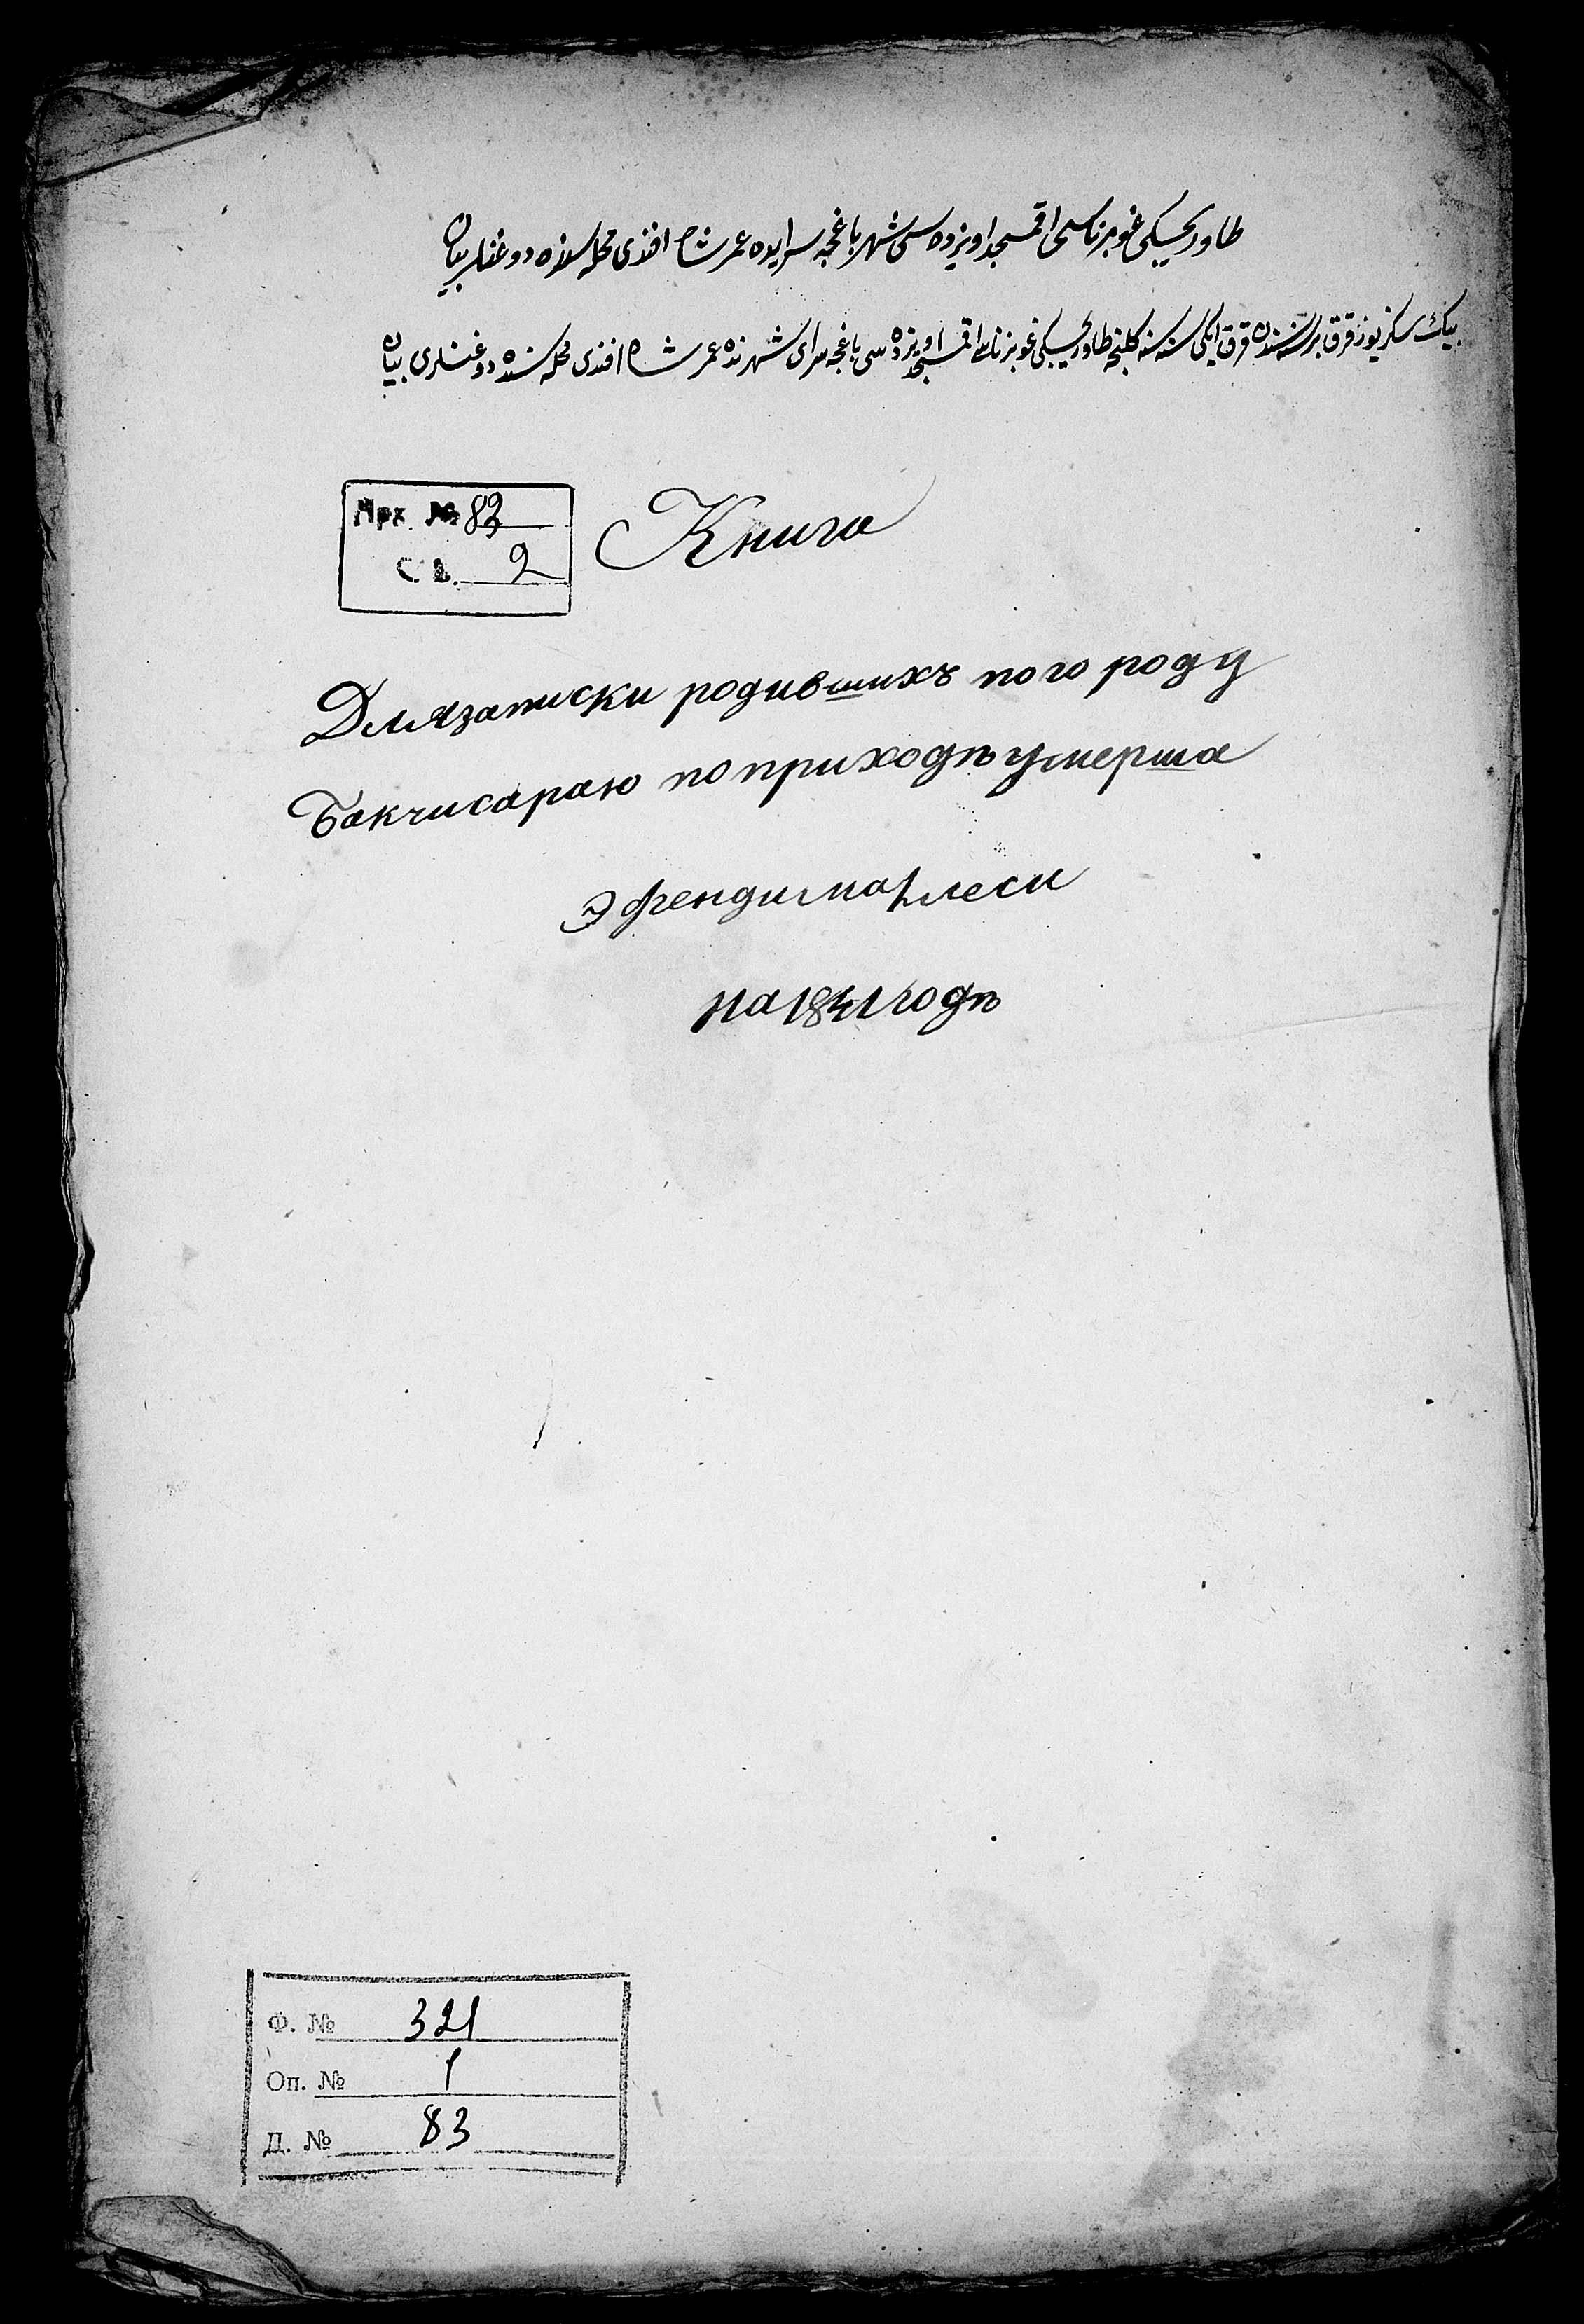 طاوريچسكى غوبرناسى اقمسجد اويزده سى شهر باغچه سرايده عمر شاه افندى محله سنده دوغنلر بيان
بيك سكز يوز قرق بر سنه سندن قرق ايكى سنه سنه كلنجه طاوريچسكى غوبرناسى اقمسجد اويزده سى باغچه سراى شهرنده عمر شاه افندى محله سنده دوغنلرى بيان
Арх. № 83
Св. 2
Книга
Для записки родившихъ по городу
Бакчисараю по приходѣ умерша
Эфенди махлеси
на 1841 годъ
Ф. № 321
Оп. № 1
Д. № 83